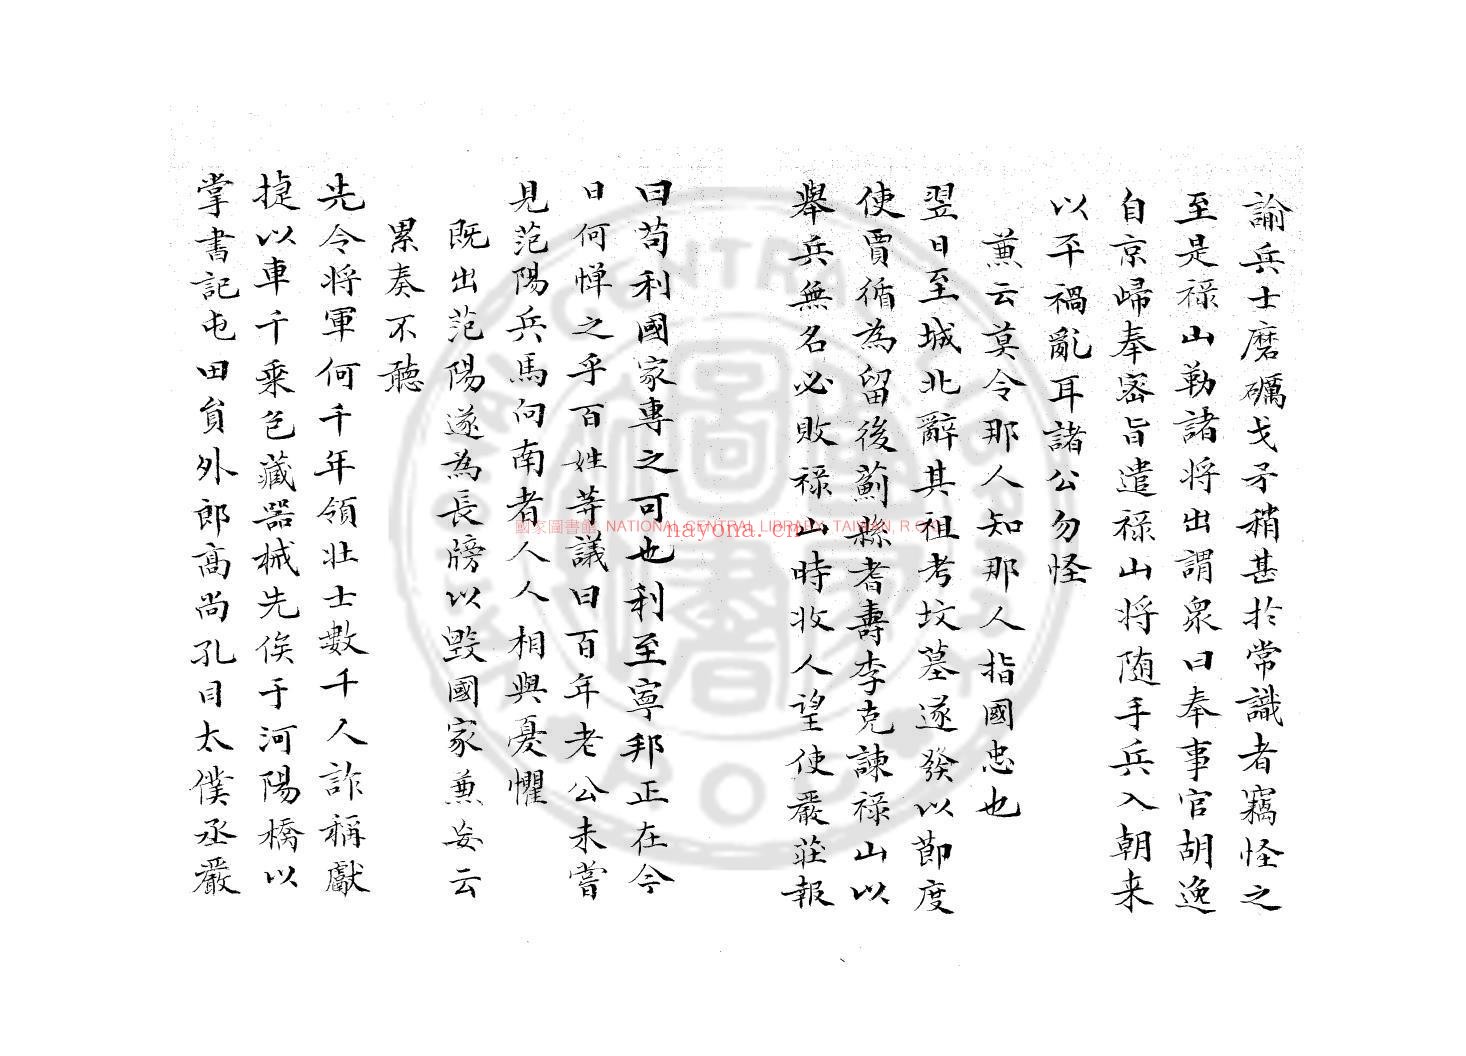 諭兵士磨礪戈矛稍甚於常識者竊怪之
至是祿山勒諸將出謂衆曰奉事官胡逸
自京歸奉密旨遣祿山将随手兵入朝来
以平禍亂耳諸公勿怪
蕙云莫令那人知那人指國忠也
翌日至城北辭其祖考坟墓遂發以節度
使賈循為留後薊縣耆壽李克諫祿山以
舉兵無名必敗祿山時收人望使嚴莊報
曰苟利國家專之可也利至寧邦正在今
日何憚之乎百姓等議曰百年老公未嘗
見范陽兵馬向南者人人相與憂懼
既出范陽遂為長牓以毀國家蕙妄云
累奏不聽
先令将軍何千年領壮士數千人詐稱獻
捷以車千乗包藏器械先俟于河陽橋以
掌書記屯田員外郎高尚孔目太僕丞嚴
國家圖書館 NATIONAL CENTRAL LIBRARY, TAIWAN, R.O.C.
nayona.cn